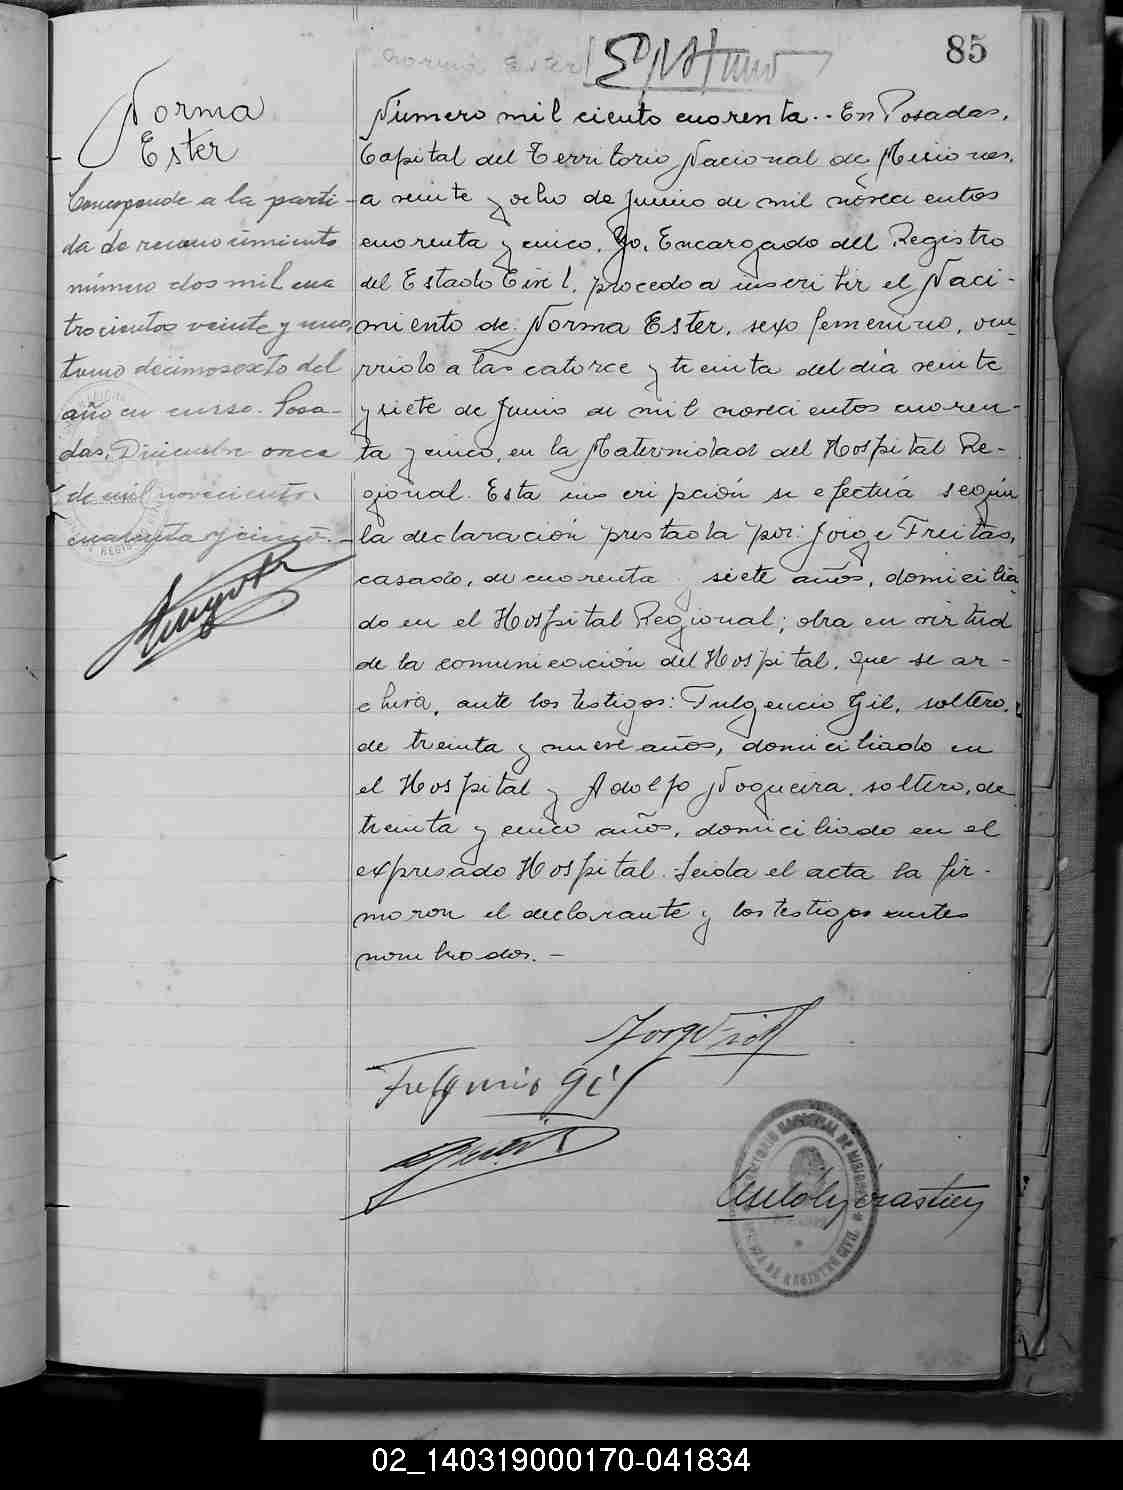 85
Norma Ester
Norma
Ester
Corresponde a la parti-
da de reconocimiento
número dos mil cua
trocientos veinte y uno,
tomo decimosexto del
año en curso. Posa-
das, Diciembre once
de mil novecientos
cuarenta y cinco.-
Número mil ciento cuarenta.- En Posadas,
Capital del Territorio Nacional de Misiones,
a veinte y ocho de Junio de mil novecientos
cuarenta y cinco. Yo, Encargado del Registro
del Estado Civil, procedo a inscribir el Naci-
miento de: Norma Ester, sexo femenino, ocu-
rrido a las catorce y treinta del día veinte
y siete de Junio de mil novecientos cuaren-
ta y cinco, en la Maternidad del Hospital Re-
gional. Esta inscripción se efectúa según
la declaración prestada por: Jorge Freitas,
casado, de cuarenta y siete años, domicilia-
do en el Hospital Regional; obra en virtud
de la comunicación del Hospital, que se ar-
chiva, ante los testigos: Fulgencio Gil, soltero,
de treinta y nueve años, domiciliado en
el Hospital y Adolfo Nogueira, soltero, de
treinta y cinco años, domiciliado en el
expresado Hospital. Leida el acta la fir-
maron el declarante y los testigos antes
nombrados.-
Fulgencio Gil
TERRITORIO NACIONAL DE MISIONES
02_140319000170-041834